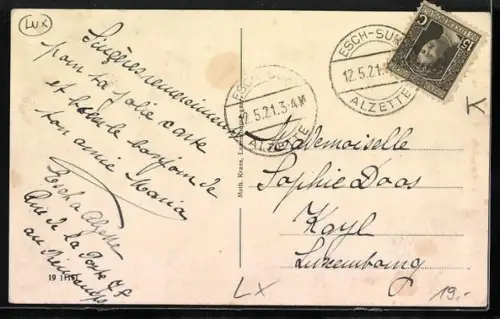 LUX
Sincères remerciements
pour ta jolie carte
et bien le bonjour de
ton amie Maria
Esch a Alzette
Rue de la Poste
au Printemps
19 1
ESCH-SUR-
12.5.21.3-4N
ALZETTE
ESCH-SUR-
12.5.21.
ALZETTE
15
C
K
Math. Kraus,
Mademoiselle
Sophie Doos
Kayl
Luxembourg
LX
19.-